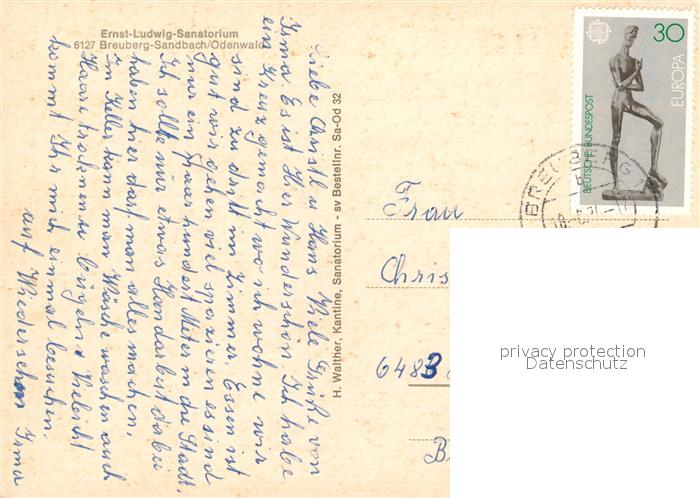 Ernst-Ludwig-Sanatorium
6127 Breuberg-Sandbach/Odenwald
Liebe Chrystl u Hans Viele Grüße von
Irma Es ist Hier Wunderschön Ich habe
ein Kreuz gemacht wo ich wohne wir
sind zu dritt im Zimmer Essen ist
gut wir gehen viel spazieren es sind
nur ein paar hundert Meter in die Stadt.
Ich sollte nur etwas Handarbeit dabei
haben hier darf man alles machen,
im Keller kann man Wäsche waschen auch
Haare trocknen u bügeln Vieleicht
kommt Ihr mich einmal besuchen.
auf Wiedersehn Irma
H. Walther, Kantine, Sanatorium - sv Bestellnr. Sa-Od 32
30
EUROPA
DEUTSCHE BUNDESPOST
BREUBERG
Frau
Chris
6483
B
privacy protection
Datenschutz